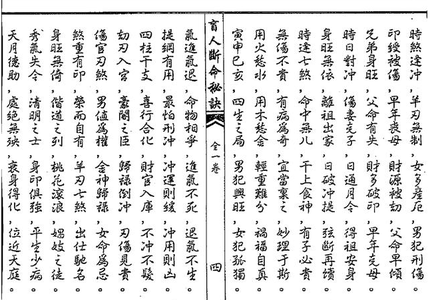 時煞逢沖,羊刃無制,女多產厄,男犯刑傷。
印綬被傷,早年喪母,財源被劫,父命早傾。
兄弟身旺,父命有失,財多破印,早年克母。
時日對沖,傷妻克子,日通月令,得祖安身。
身旺無依,離祖出家,日破沖提,弦斷再續。
時逢七煞,命中無兒,干上食神,有子必產。
無傷不貴,有病為奇,宜當棄之,妙理于斯。
用火愁水,用木愁金,輕重難分,禍福自真。
寅申巳亥,四生之局,男犯興旺,女犯孤獨。
盲人斷命秘訣
全一卷
四
氣進氣退,命物相爭,進氣不死,退氣不生。
提綱有用,最怕刑沖,沖運則緩,沖用則凶。
四柱干支,喜行合化,財官入庫,不沖不發。
劫刃入官,臺閣之臣,歸祿倒沖,刃傷見貴。
傷官刃煞,男值為權,金神歸祿,女命為忌。
煞重有印,榮而自有,羊刃七煞,出仕馳名。
身旺無倚,偕道之列,桃花滾浪,娼妓之徒。
秀氣失令,清明之士,身印俱強,平生少病。
天月德助,處絕無殃,衰身得化,位近天庭。